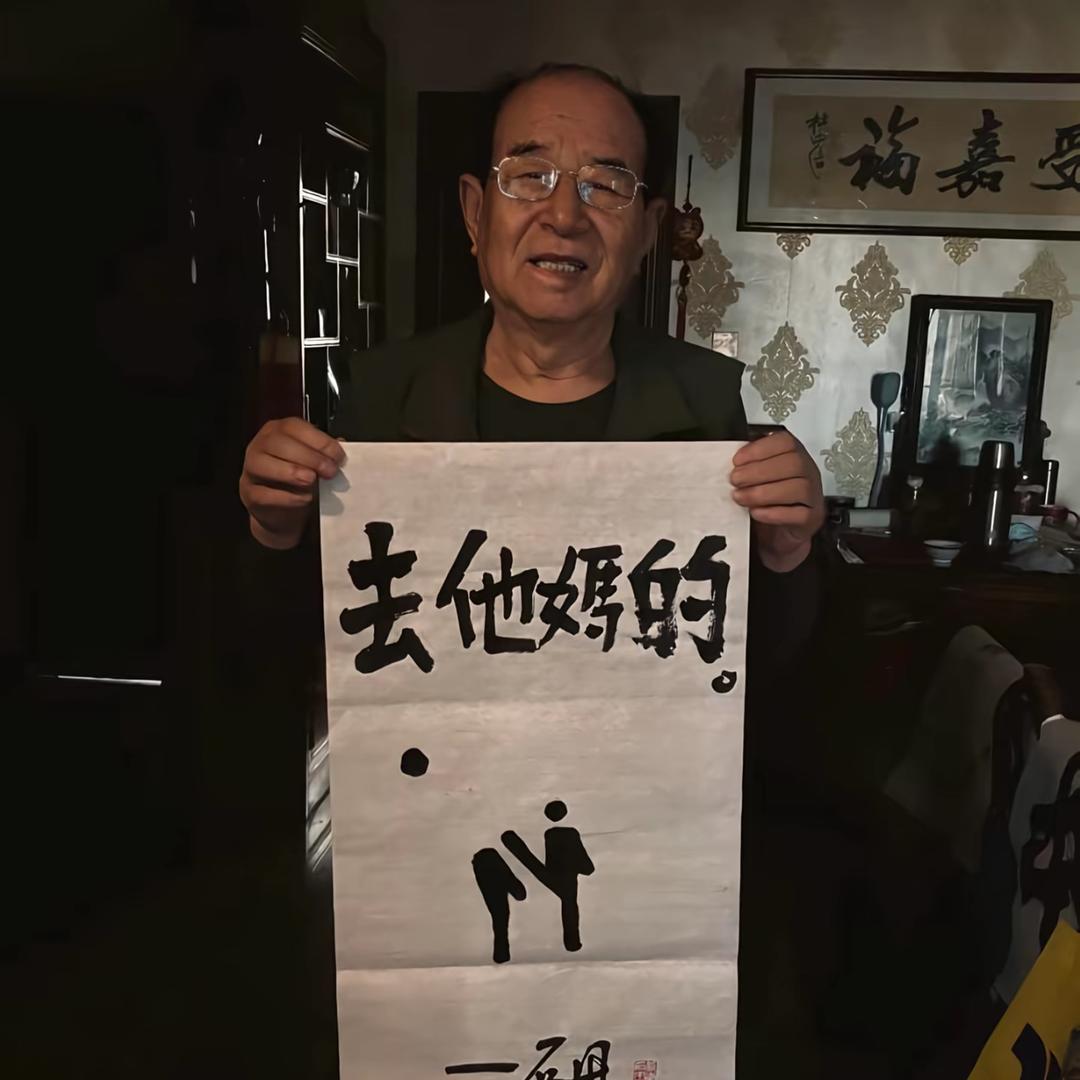 受嘉福
去他媽的。
一